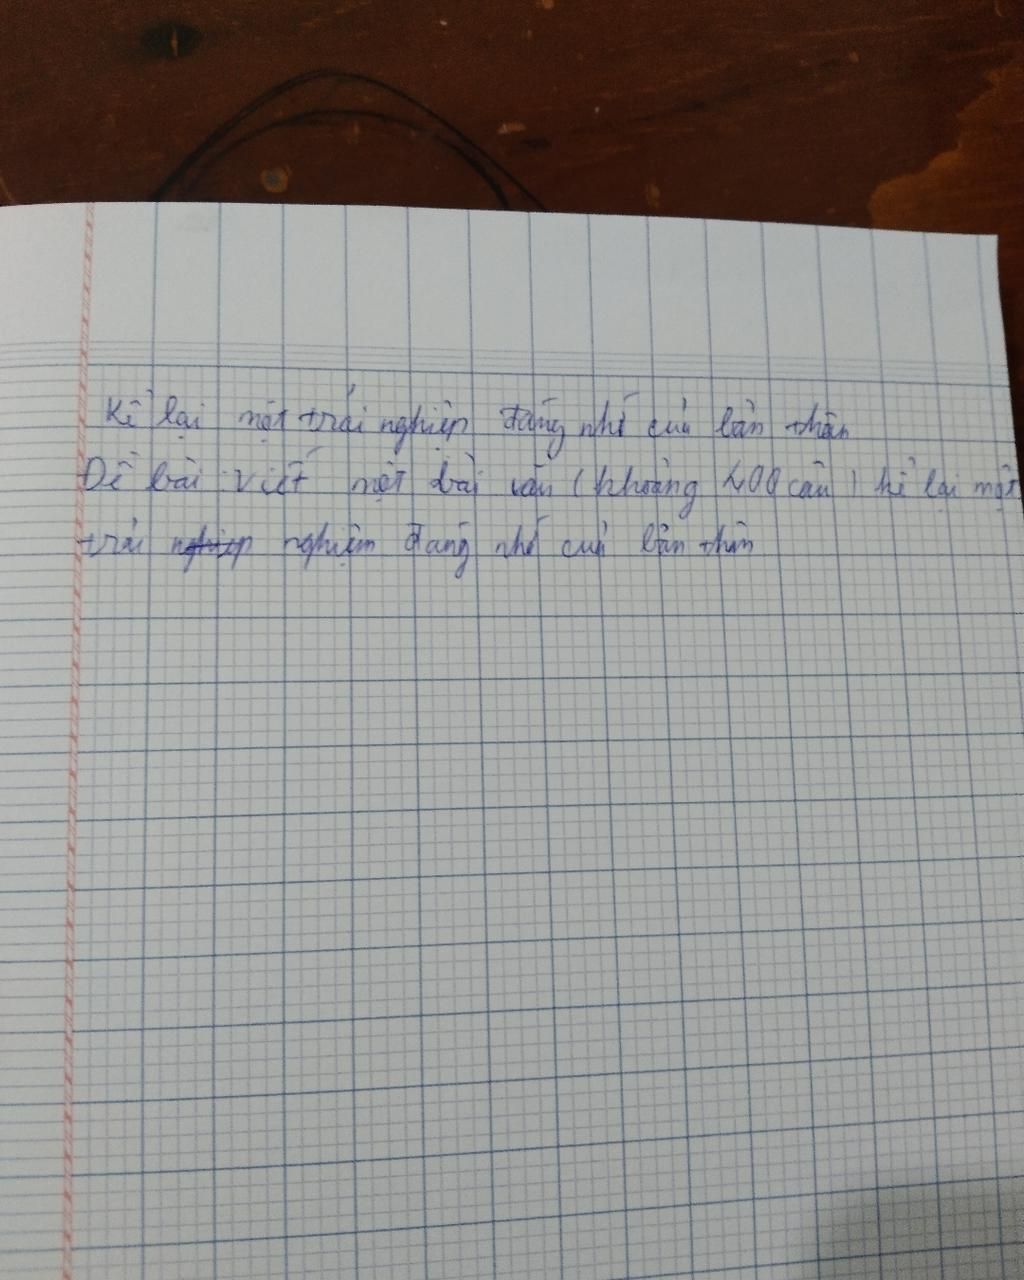 Kể lại một trải nghiệp đáng nhớ của bản thân
Đề bài : Viết một bài văn ( khoảng 400 câu ) kể lại một
trải nghiệp nghiệm đáng nhớ của bản thân